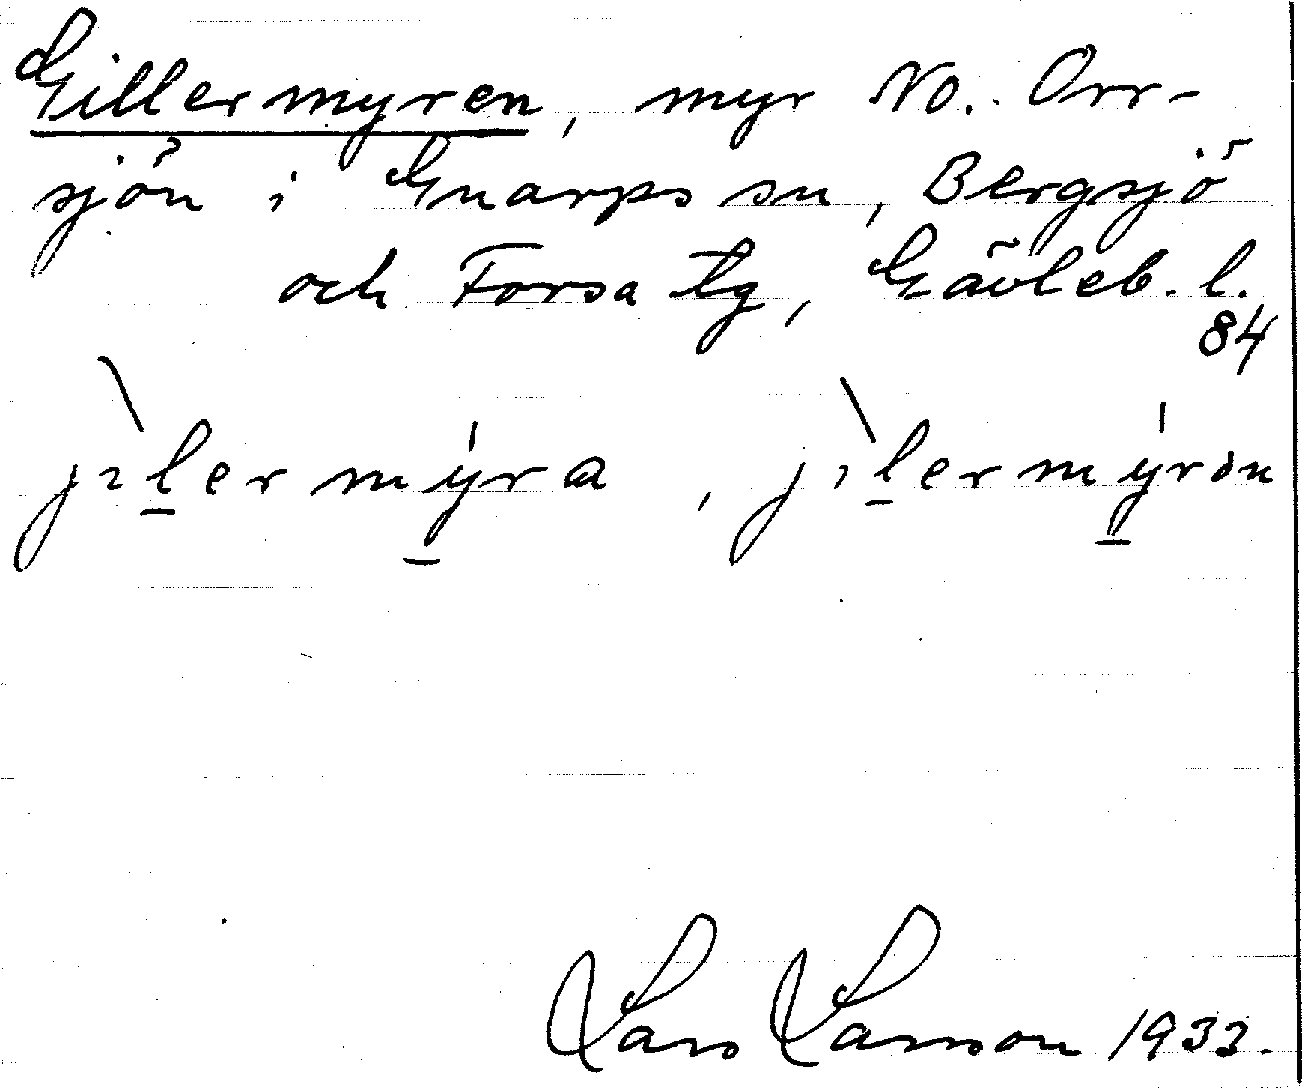 Gillermyren, myr NO. Orr-
sjön i Gnarps sn, Bergsjö
och Forsa tg, Gävleb. l.
84
jìlermýra, jìlermýrön
Lars Larsson 1933.